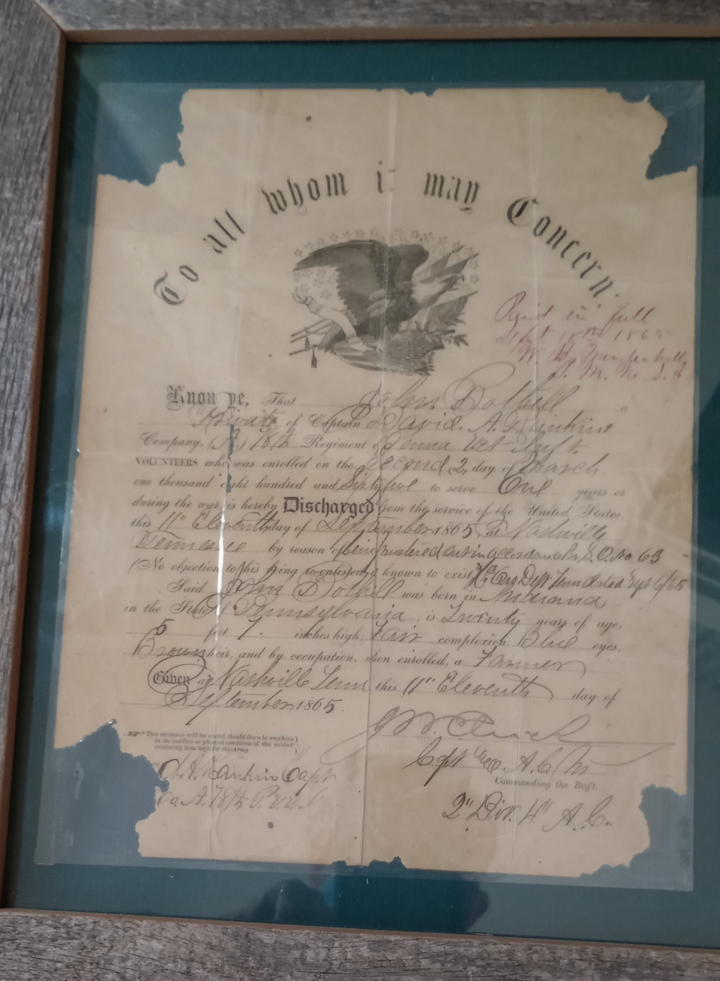 To all whom it may Concern.
Paid in full
Sept 1865
W. B.
Know ye, That John
Private of Captain David. A. Rankins
Company, (A) 78th Regiment of Penna Vet Inft.
VOLUNTEERS who was enrolled on the Second 2" day of March
one thousand eight hundred and Sixty five to serve One years or
during the war, is hereby Discharged from the service of the United States
this 11" Eleventh day of September 1865, at Nashville
Tennessee by reason of being mustered out in accordance G.O. No 63
(No objection to his being re-enlisted is known to exist Hd Qrs Dept Tenn dated Sept 6/65
Said John was born in Indiana
in the State of Pennsylvania, is Twenty years of age,
5 feet 7. inches high, Fair complexion, Blue eyes,
Brown hair, and by occupation, when enrolled, a Farmer
Given at Nashville Tenn this 11" Eleventh day of
September 1865.
This sentence will be erased should there be anything
in the conduct or physical condition of the soldier
rendering him unfit for the Army
Capt A.C.M
Commanding the Regt.
D. A. Rankin Capt
Co. A. 78th P.V.
2" Div. 4" A.C.